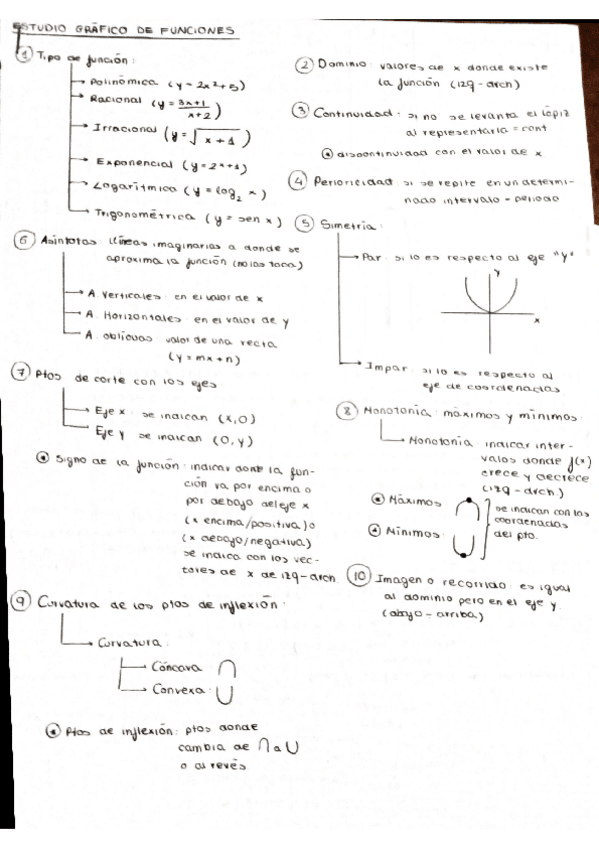 ESTUDIO GRÁFICO DE FUNCIONES
① Tipo de función:
Polinómica (y = 2x² + 5)
Racional (y = 3x+1 / x+2)
Irracional (y = √x + 1)
Exponencial (y = 2x+1)
Logarítmica (y = log₂ x)
Trigonométrica (y = sen x)
② Dominio: valores de x donde existe
la función (izq - drch)
③ Continuidad: si no se levanta el lápiz
al representarla = cont
discontinuidad con el valor de x
④ Periodicidad: si se repite en un determi-
nado intervalo = periodo
⑤ Simetría:
Par: si lo es respecto al eje "y"
y
x
Impar: si lo es respecto al
eje de coordenadas
⑥ Asíntotas: líneas imaginarias a donde se
aproxima la función (no las toca)
A. Verticales: en el valor de x
A. Horizontales: en el valor de y
A. oblicuas: valor de una recta
(y = mx + n)
⑦ Ptos de corte con los ejes
Eje x: se indican (x, 0)
Eje y: se indican (0, y)
Signo de la función: indicar donde la fun-
ción va por encima o
por debajo del eje x
(x encima/positiva) o
(x debajo/negativa)
se indica con los vec-
tores de x de izq - drch.
⑧ Monotonía: máximos y mínimos:
Monotonía: indicar inter-
valos donde f(x)
crece y decrece
(izq - drch.)
Máximos
Mínimos:
se indican con las
coordenadas
del pto.
⑨ Curvatura de los ptos de inflexión:
Curvatura:
Cóncava: ∩
Convexa: ∪
Ptos de inflexión: ptos donde
cambia de ∩ a ∪
o al revés
⑩ Imagen o recorrido: es igual
al dominio pero en el eje y.
(abajo - arriba)